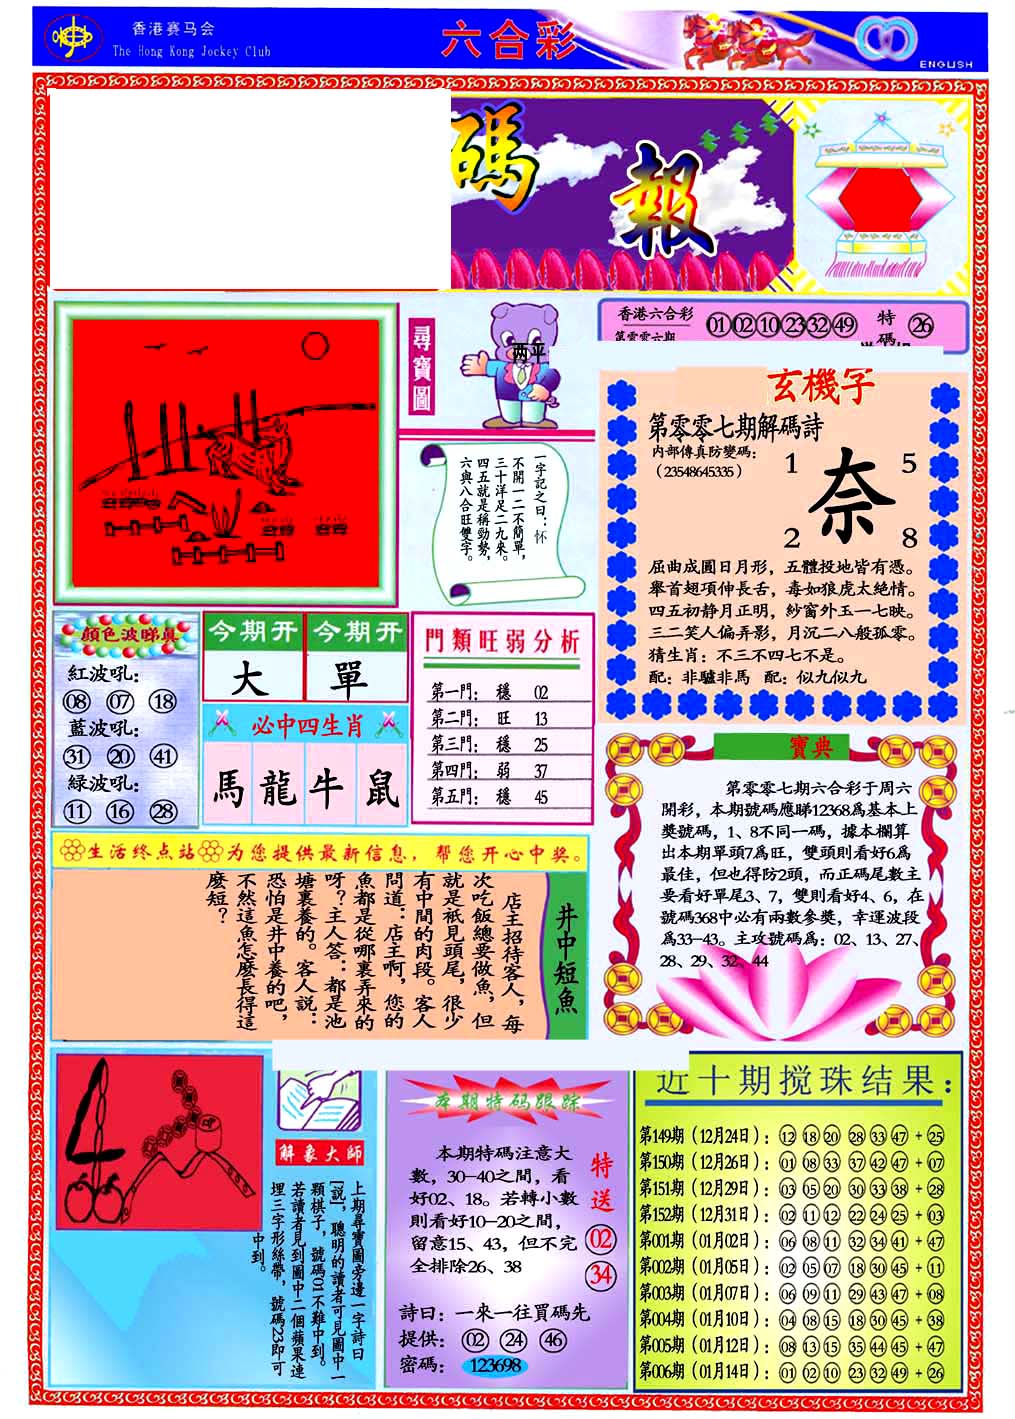 香港赛马会
The Hong Kong Jockey Club
六合彩
ENGLISH
碼
報
尋寶圖
两平
香港六合彩
第零零六期
01 02 10 23 32 49
特碼
26
一字記之曰：怀
不開一二不簡單，
三十洋足二九來。
四五就是稱勁勢，
六與八合旺雙字。
玄機字
第零零七期解碼詩
内部傳真防變碼：
（23548645335）
1 5
奈
2 8
屈曲成圓日月形，五體投地皆有憑。
舉首翅項伸長舌，毒如狼虎太絶情。
四五初静月正明，紗窗外玉一七映。
三二笑人偏弄影，月沉二八般孤零。
猜生肖：不三不四七不是。
配：非驢非馬 配：似九似九
顔色波睇真
紅波吼：
08 07 18
藍波吼：
31 20 41
緑波吼：
11 16 28
今期开 今期开
大 單
必中四生肖
馬 龍 牛 鼠
門類旺弱分析
第一門： 穩 02
第二門： 旺 13
第三門： 穩 25
第四門： 弱 37
第五門： 穩 45
寶典
第零零七期六合彩于周六
開彩，本期號碼應睇12368爲基本上
獎號碼，1、8不同一碼，據本欄算
出本期單頭7爲旺，雙頭則看好6爲
最佳，但也得防2頭，而正碼尾數主
要看好單尾3、7，雙則看好4、6，在
號碼368中必有兩數參獎，幸運波段
爲33-43。主攻號碼爲：02、13、27、
28、29、32、44
生活终点站 为您提供最新信息，帮您开心中奖。
井中短魚
店主招待客人，每
次吃飯總要做魚，但
就是衹見頭尾，很少
有中間的肉段。客人
問道：店主啊，您的
魚都是從哪裏弄來的
呀？主人答：都是池
塘裏養的。客人説：
恐怕是井中養的吧，
不然這魚怎麼長得這
麼短？
解象大師
上期尋寶圖旁邊一字詩曰
[説]，聰明的讀者可見圖中一
顆棋子，號碼01不難中到。
若讀者見到圖中二個蘋果連
埋三字形絲帶，號碼23即可
中到。
本期特码跟踪
本期特碼注意大
數，30-40之間，看
好02、18。若轉小數
則看好10-20之間，
留意15、43，但不完
全排除26、38
特送
02
34
詩曰： 一來一往買碼先
提供： 02 24 46
密碼： 123698
近十期搅珠结果：
第149期（12月24日）：12 18 20 28 33 47 + 25
第150期（12月26日）：01 08 33 37 42 47 + 07
第151期（12月29日）：03 05 20 30 33 38 + 28
第152期（12月31日）：02 11 12 22 24 25 + 03
第001期（01月02日）：06 08 11 32 34 41 + 47
第002期（01月05日）：02 05 07 18 30 45 + 11
第003期（01月07日）：06 09 11 29 43 47 + 08
第004期（01月10日）：04 08 15 18 30 45 + 38
第005期（01月12日）：08 13 15 35 44 45 + 47
第006期（01月14日）：01 02 10 23 32 49 + 26